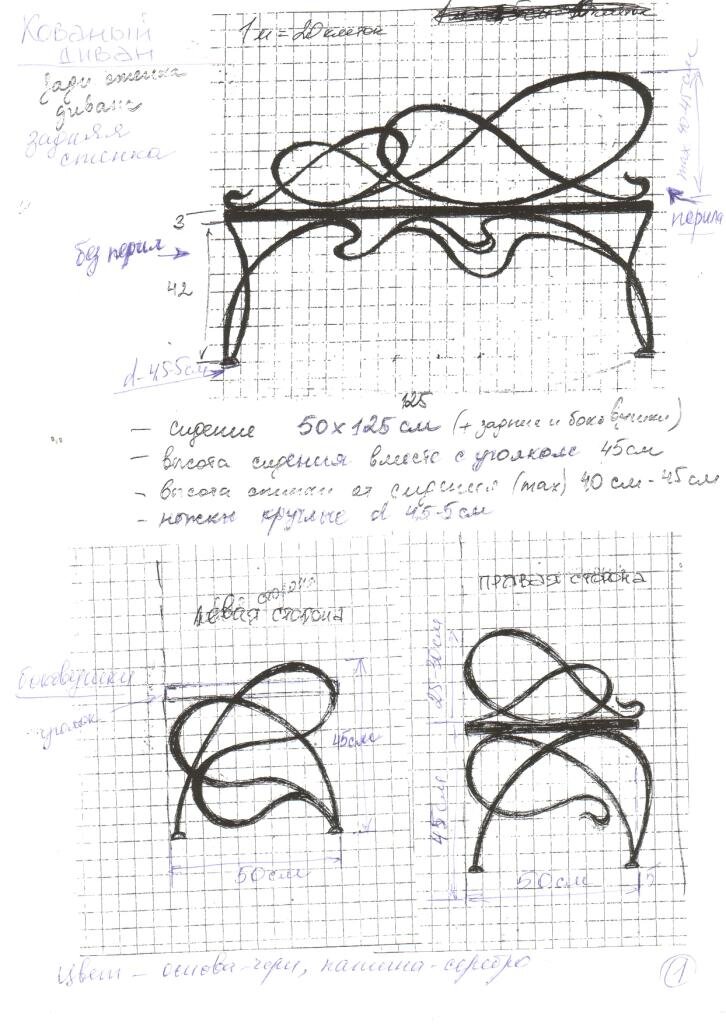 Кованый
диван
1м = 20 клеток
Задн стенка
диван
задняя
стенка
max 40-45см
3
перила
без перил
42
d-4,5-5см
125
- сидение 50х125см (+ задние и боковушки)
- высота сидения вместе с уголком 45см
- высота спинки от сидения (max) 40см-45см
- ножки круглые d 4,5-5см
левая сторона
сторона
правая сторона
боковушки
уголок
45см
50см
25-30см
45см
50см
5
Цвет - основа-черн, патина-серебро
1